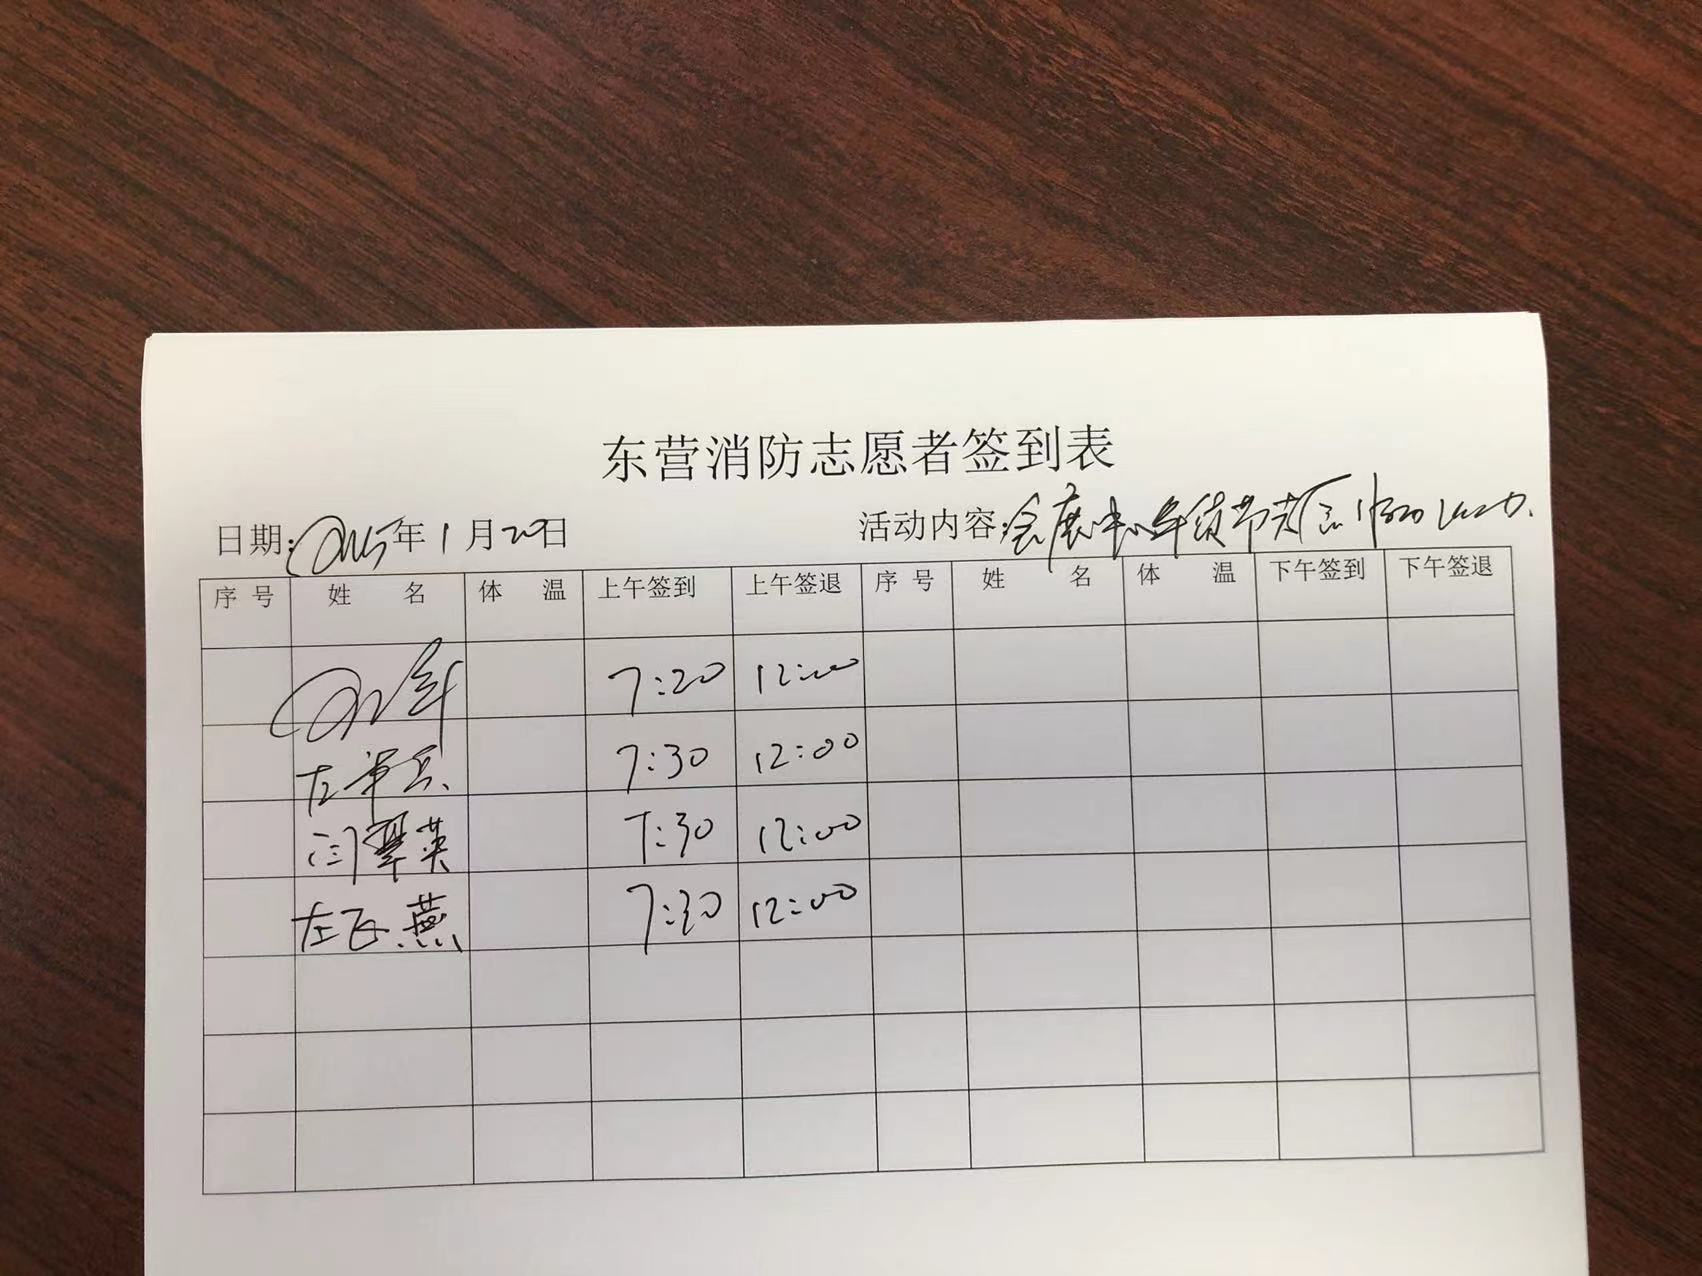 东营消防志愿者签到表
日期: 年1月20日 活动内容: 会展中心年货节志
序号 姓名 体温 上午签到 上午签退 序号 姓名 体温 下午签到 下午签退
7:20 12:00
左军兵 7:30 12:00
闫翠英 7:30 12:00
左飞燕 7:30 12:00